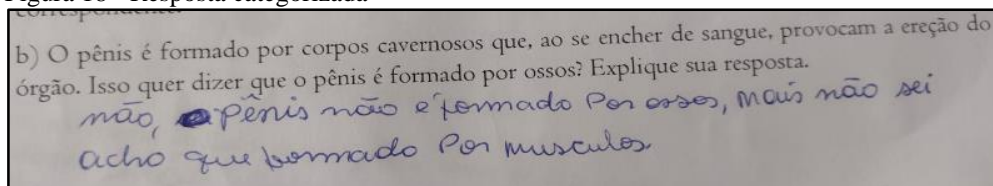 b) O pênis é formado por corpos cavernosos que, ao se encher de sangue, provocam a ereção do
órgão. Isso quer dizer que o pênis é formado por ossos? Explique sua resposta.
não, o pênis não é formado por ossos, mais não sei
acho que formado por musculos